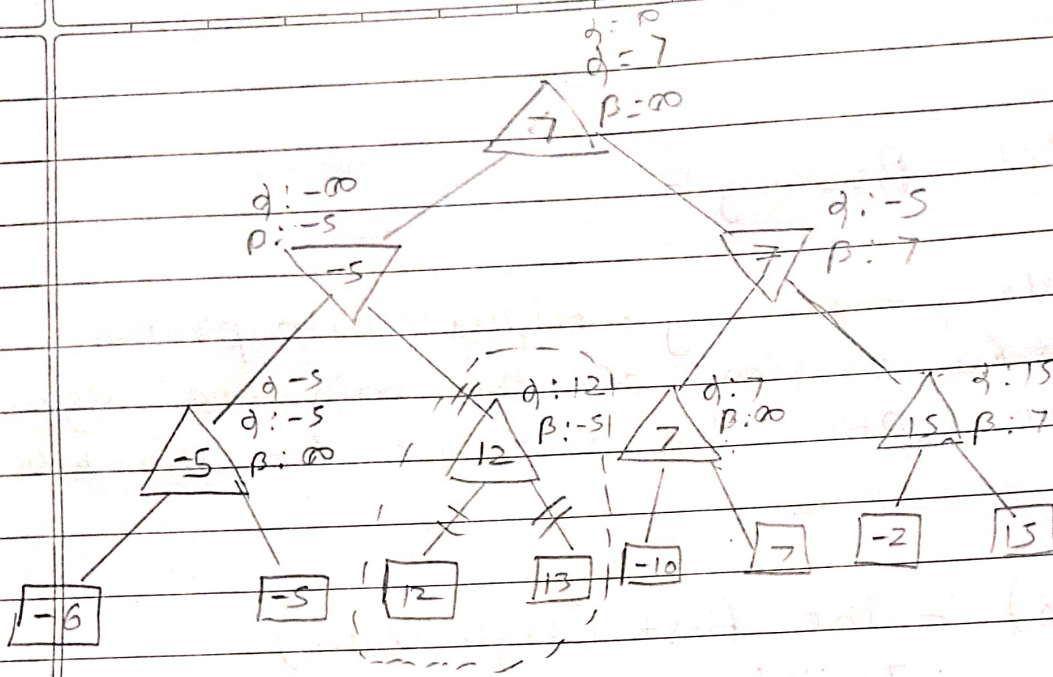 α = 7
7
β = ∞
α : -∞
β : -5
-5
α : -5
β : 7
7
α -5
α : -5
β : ∞
-5
α : 12
β : -5
12
α : 7
β : ∞
7
α : 15
β : 7
15
-6
-5
12
13
-10
7
-2
15